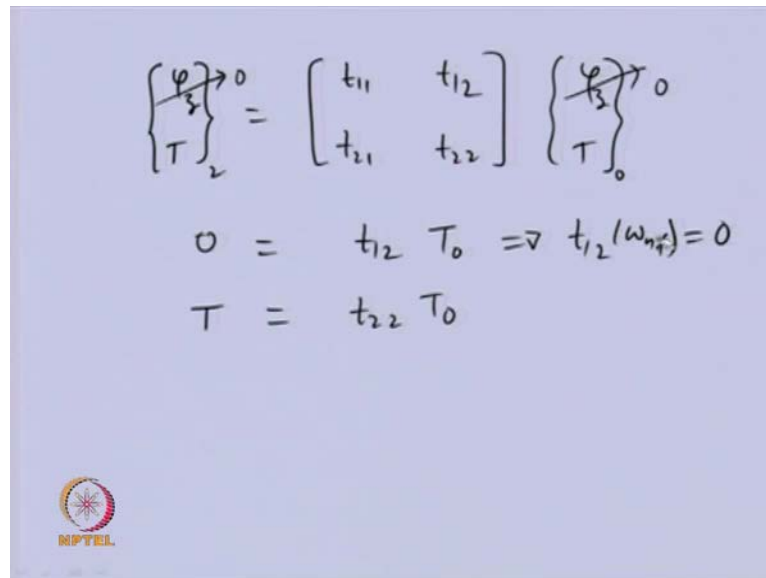 {φ_z→0 T}_2 = [t_11 t_12 t_21 t_22] {φ_z→0 T}_0
0 = t_12 T_0 => t_12(ω_nf) = 0
T = t_22 T_0
NPTEL